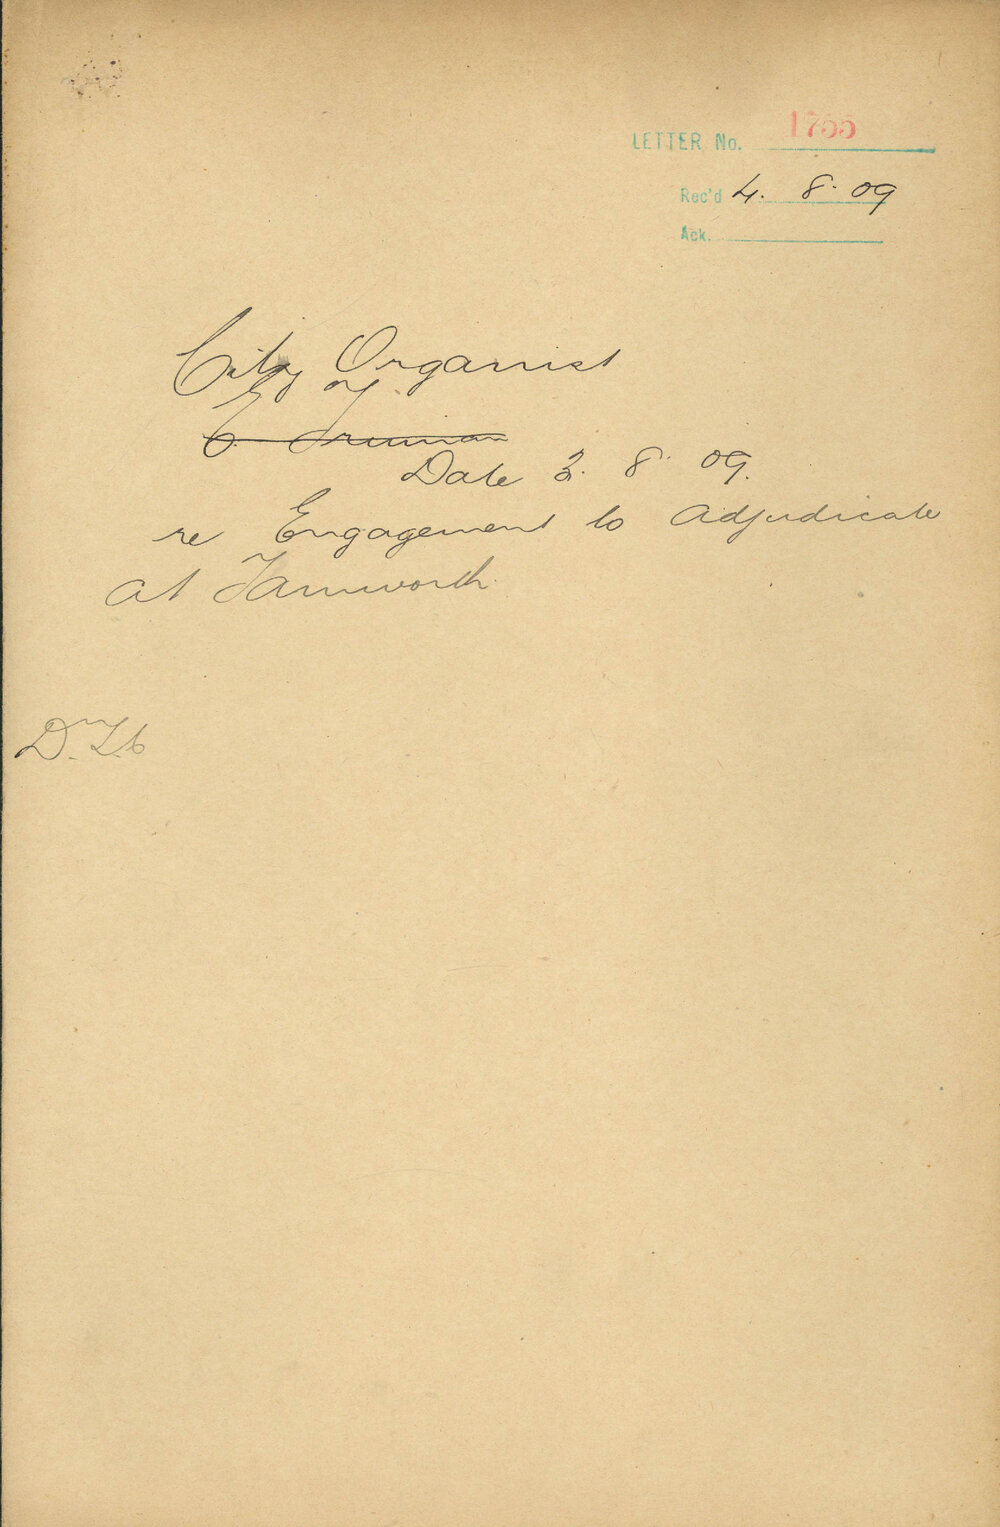 LETTER No. 1755
Rec'd 4. 8. 09
Ack.
City Organist
E. Truman
Date 3. 8. 09.
re Engagement to Adjudicate
at Tamworth.